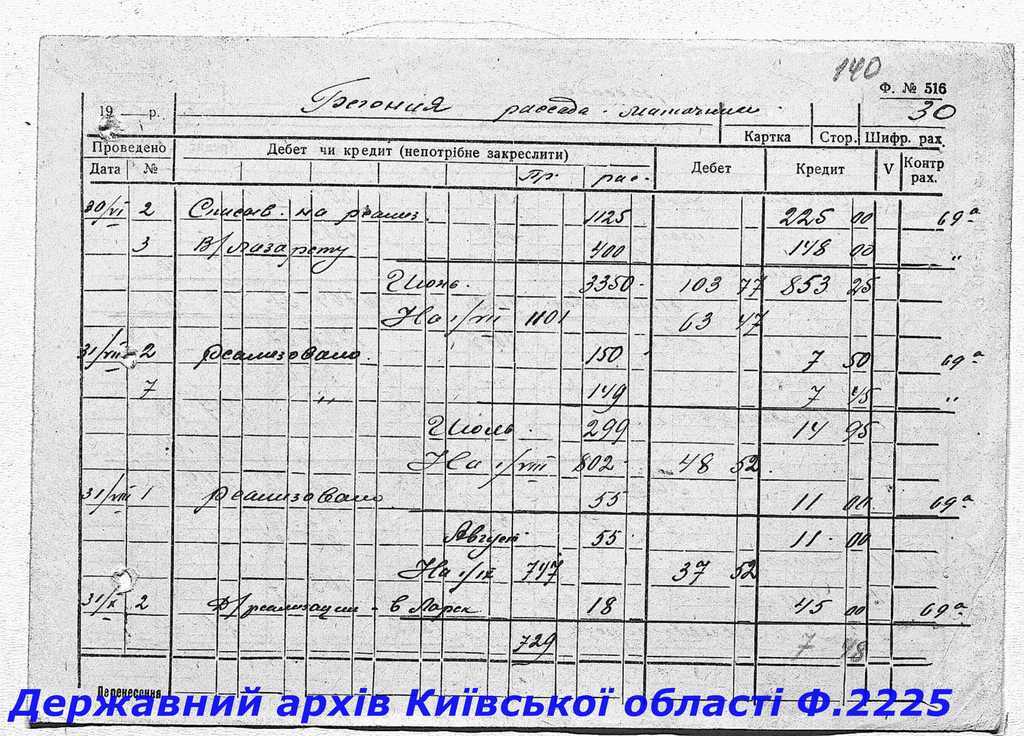 140
Ф. № 516
19 р. Бегония рассада маточники 30
Картка Стор. Шифр. рах.
Проведено Дебет чи кредит (непотрібне закреслити) Дебет Кредит V Контр рах.
Дата № Пр. рас.
30/VI 2 Списыв. на реализ. 1125 225 00 69а
3 В/лазарету 400 148 00 "
Июнь. 3350 103 77 853 25
На 1/VII 1101 63 47
31/VII 2 реализовано. 150 7 50 69а
7 " 149 7 45 "
Июль. 299 14 95
На 1/VIII 802 48 52
31/VIII 1 реализовано 55 11 00 69а
Август 55 11 00
На 1/IX 747 37 52
31/X 2 Д/реализации - в 18 45 00 69а
729 7 48
Перенесення
Державний архів Київської області Ф.2225